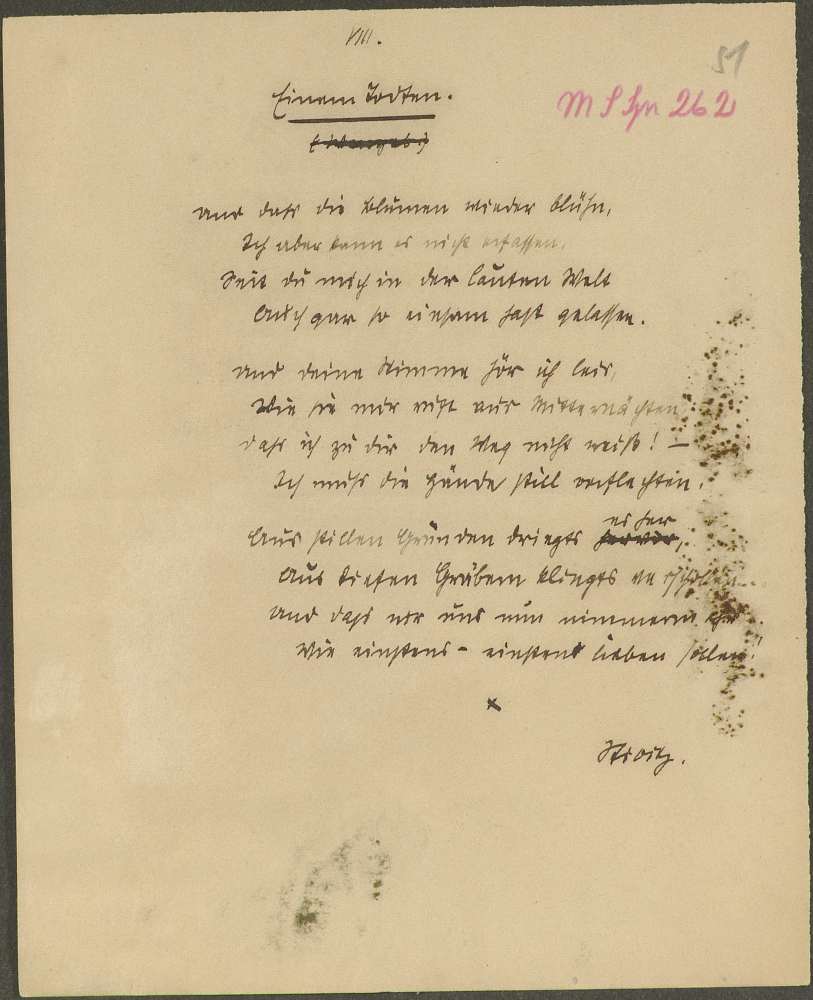 VIII.
51
Einem Todten.
M S Spr 262
und daß die Blumen wieder blühn,
Ich aber kann es nicht erfassen,
Seit du mich in der lauten Welt
Auch gar so einsam hast gelassen.
und deine Stimme hör ich leis,
Wie sie mir ruft aus Mitternächten,
daß ich zu dir den Weg nicht weiß! –
Ich muß die Hände still verflechten.
Aus stillen Gründen dringts
es her
hervor,
Aus tiefen Gräbern klingts verschollen
und daß wir uns nun nimmermehr
Wie einstens – einstens lieben sollen!
x